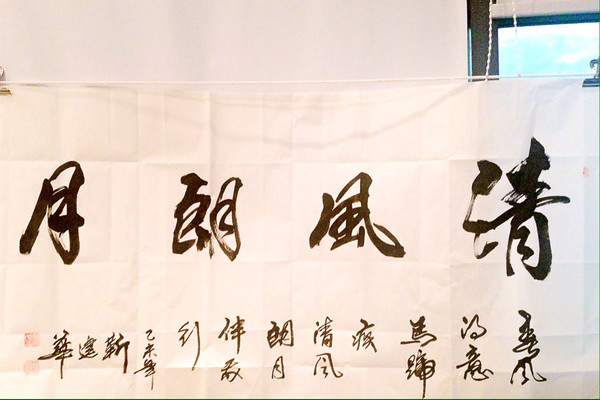 清風朗月
春風
得意
馬蹄
疾
清風
朗月
伴君
行
乙未年
靳建華